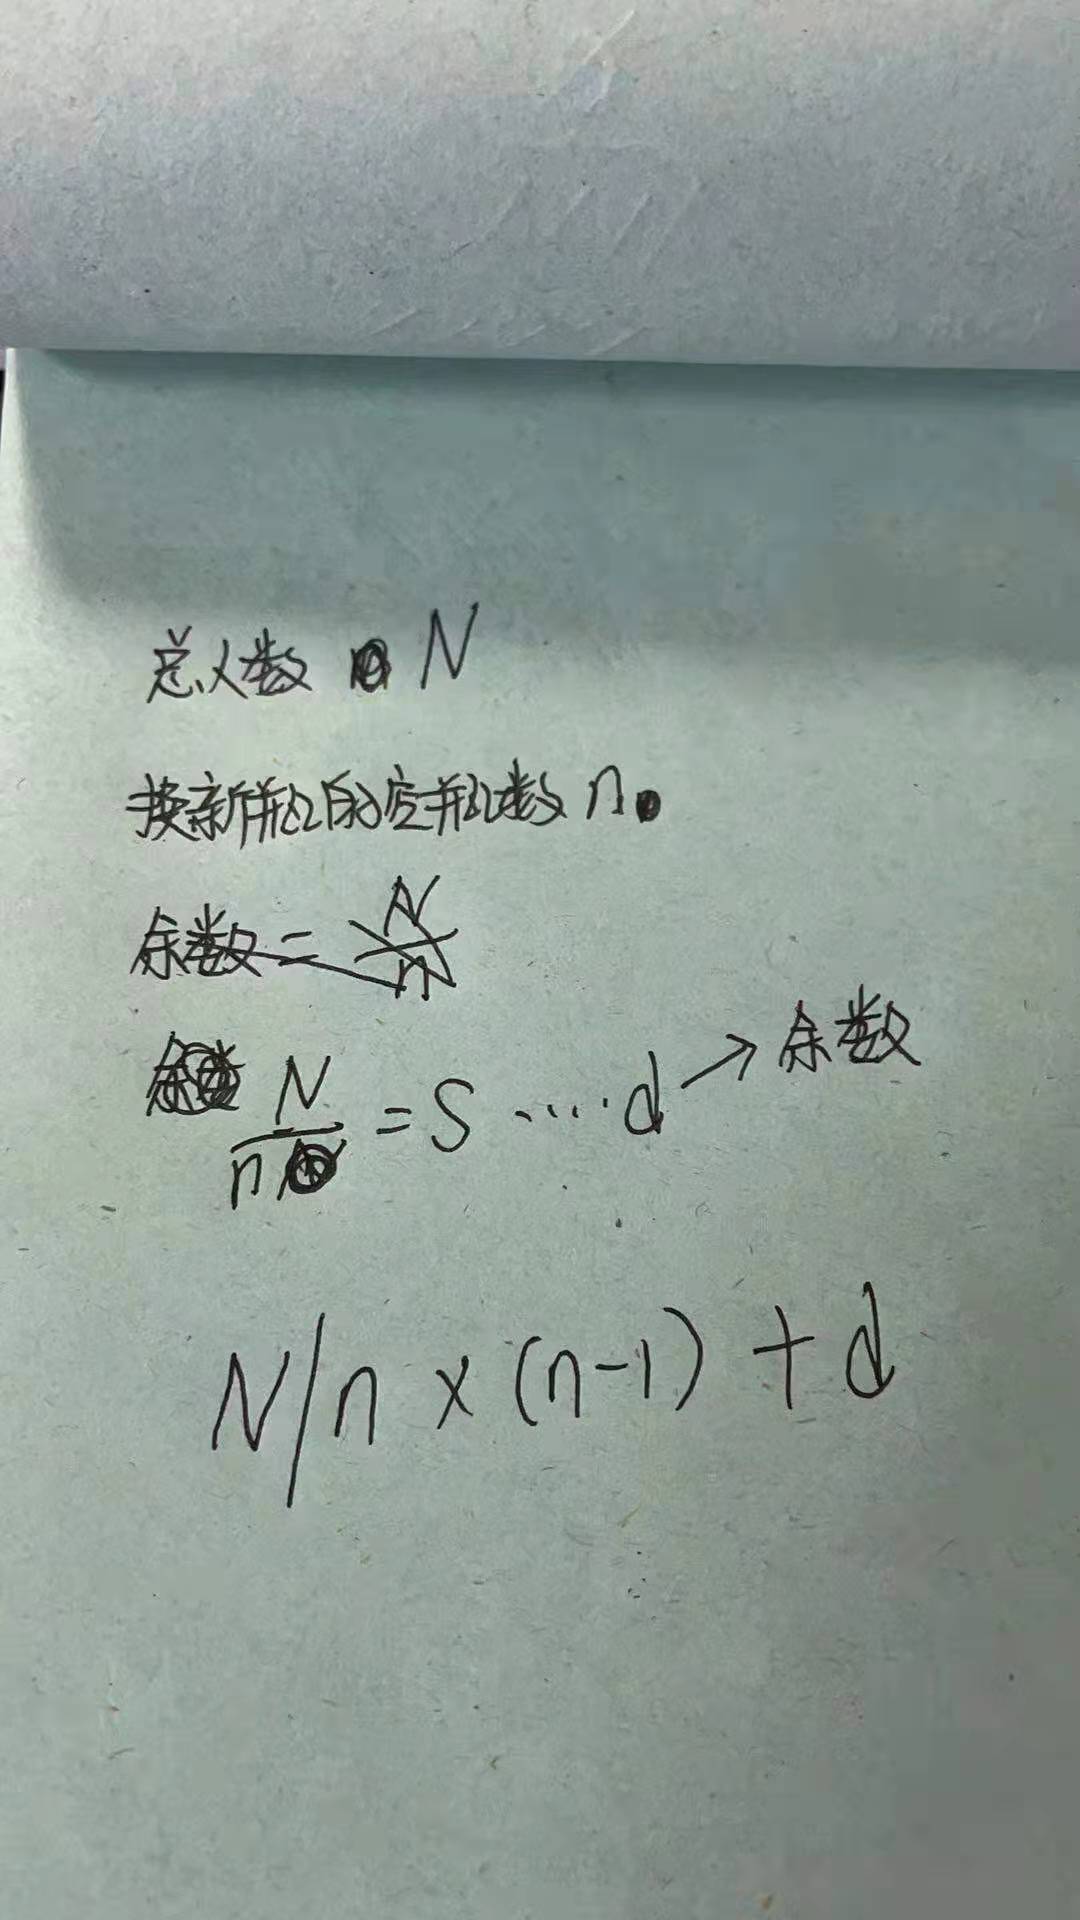 总人数 N
换新瓶的空瓶数 n
余数 = N/n
N/n = S ····d → 余数
N/n × (n-1) + d